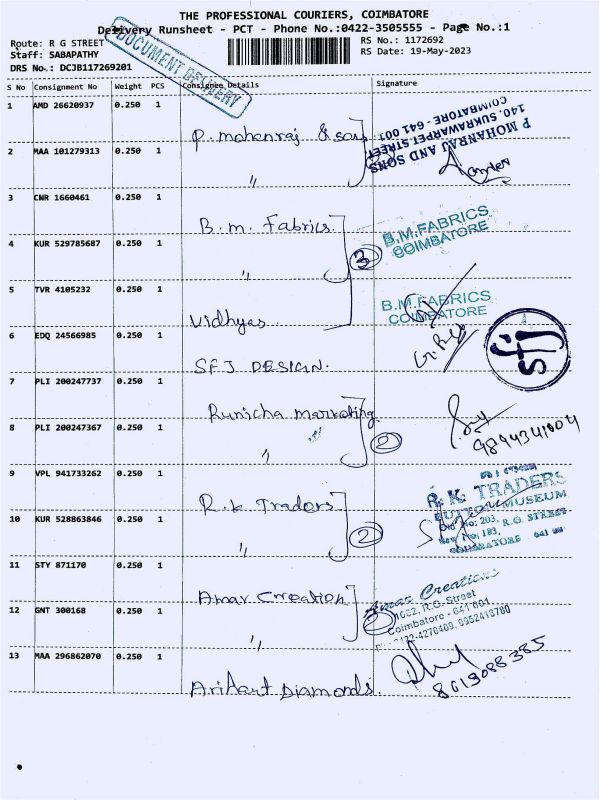 THE PROFESSIONAL COURIERS, COIMBATORE
Delivery Runsheet - PCT - Phone No.:0422-3505555 - Page No.:1
Route: R G STREET
Staff: SABAPATHY
DRS No.: DCJB117269201
DOCUMENT DELIVERY
RS No.: 1172692
RS Date: 19-May-2023
S No Consignment No Weight PCS Consignee Details Signature
1 AMD 26620937 0.250 1
P. mohanraj & sons
P MOHANRAJ AND SONS
140, SUKRAWARPET STREET,
COIMBATORE - 641 001
2 MAA 101279313 0.250 1
"
3 CNR 1660461 0.250 1
B.m. Fabrics
B.M.FABRICS
COIMBATORE
4 KUR 529785687 0.250 1
" 3
5 TVR 4105232 0.250 1
Vidhyas
B.M.FABRICS
COIMBATORE
6 EDQ 24566985 0.250 1
SFJ DESIGN.
sfj
7 PLI 200247737 0.250 1
Runicha marketing
8 PLI 200247367 0.250 1
" 2
9894341004
9 VPL 941733262 0.250 1
R.k Traders
R. K. TRADERS
BUTTON MUSEUM
Old No: 203, R.G. STREET
New No: 193,
COIMBATORE 641 001
10 KUR 528863846 0.250 1
" 2
11 STY 871170 0.250 1
Amar Creation
Amar Creations
R.G. Street
Coimbatore - 641 001
12 GNT 300168 0.250 1
" 2
13 MAA 296862070 0.250 1
Arihant Diamonds.
8019088385